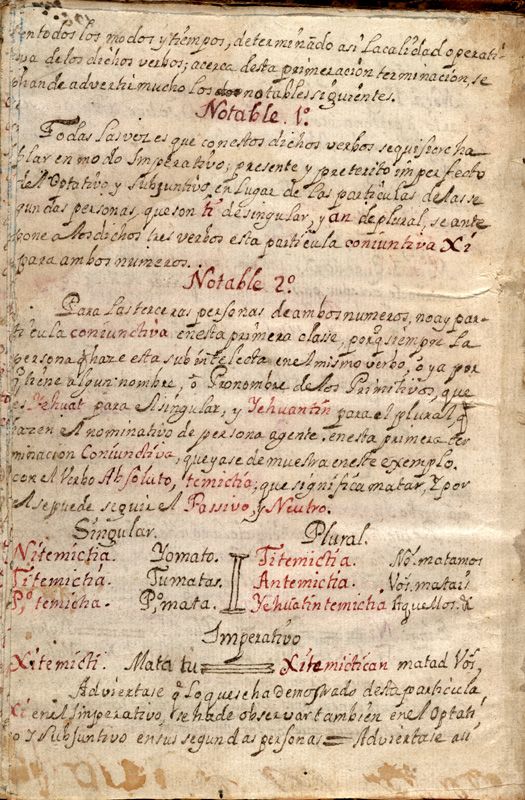 en todos los modos y tiempos, determinãdo asi la calidad operati
va de los dichos verbos; acerca desta primeracion terminacion, se
han de advertir mucho los dos notables siguientes.
Notable. 1º.
Todas las vezes que con estos dichos verbos se quisiere ha
blar en modo Imperativo; presente y preterito imperfecto
del Optativo, y Subjuntivo, en lugar de las particulas de las se
gundas personas, que son ti de singular, y an de plural, se ante
pone a los dichos tres verbos esta particula coniuntiva Xi
para ambos numeros.
Notable 2º.
Para las terceras personas de ambos numeros, no ay par-
ticula coniunctiva en esta primera classe, porq̃ siempre la
persona q̃ haze esta subintelecta en el mismo verbo, o ya por
q̃ tiene algun nombre, o Pronombre de los Primitivos, que
es Yehuat para el singular, y Yehuantin para el plural
hazen el nominativo de persona agente, en esta primera ter
minacion Coniunctiva, que ya se demuestra en este exemplo.
con el Verbo Absoluto, temictia; que significa matar, y por
el se puede seguir el Passivo, y Neutro.
Singular. Plural.
Nitemictia. Yo mato. Titemictia. Nos. matamos
Titemictia. Tu matas. Antemictia. Vos. matais
P,º temictia. Pº, mata. Yehuatintemictia Aquellos. &
Imperativo
Xitemicti. Mata tu Xitemictican matad Vos,
Adviertase q̃ lo que se ha demostrado desta particula
Xi en el Imperativo, se ha de observar tambien en el Optati
vo y Subjuntivo en sus segundas personas = Adviertase assi